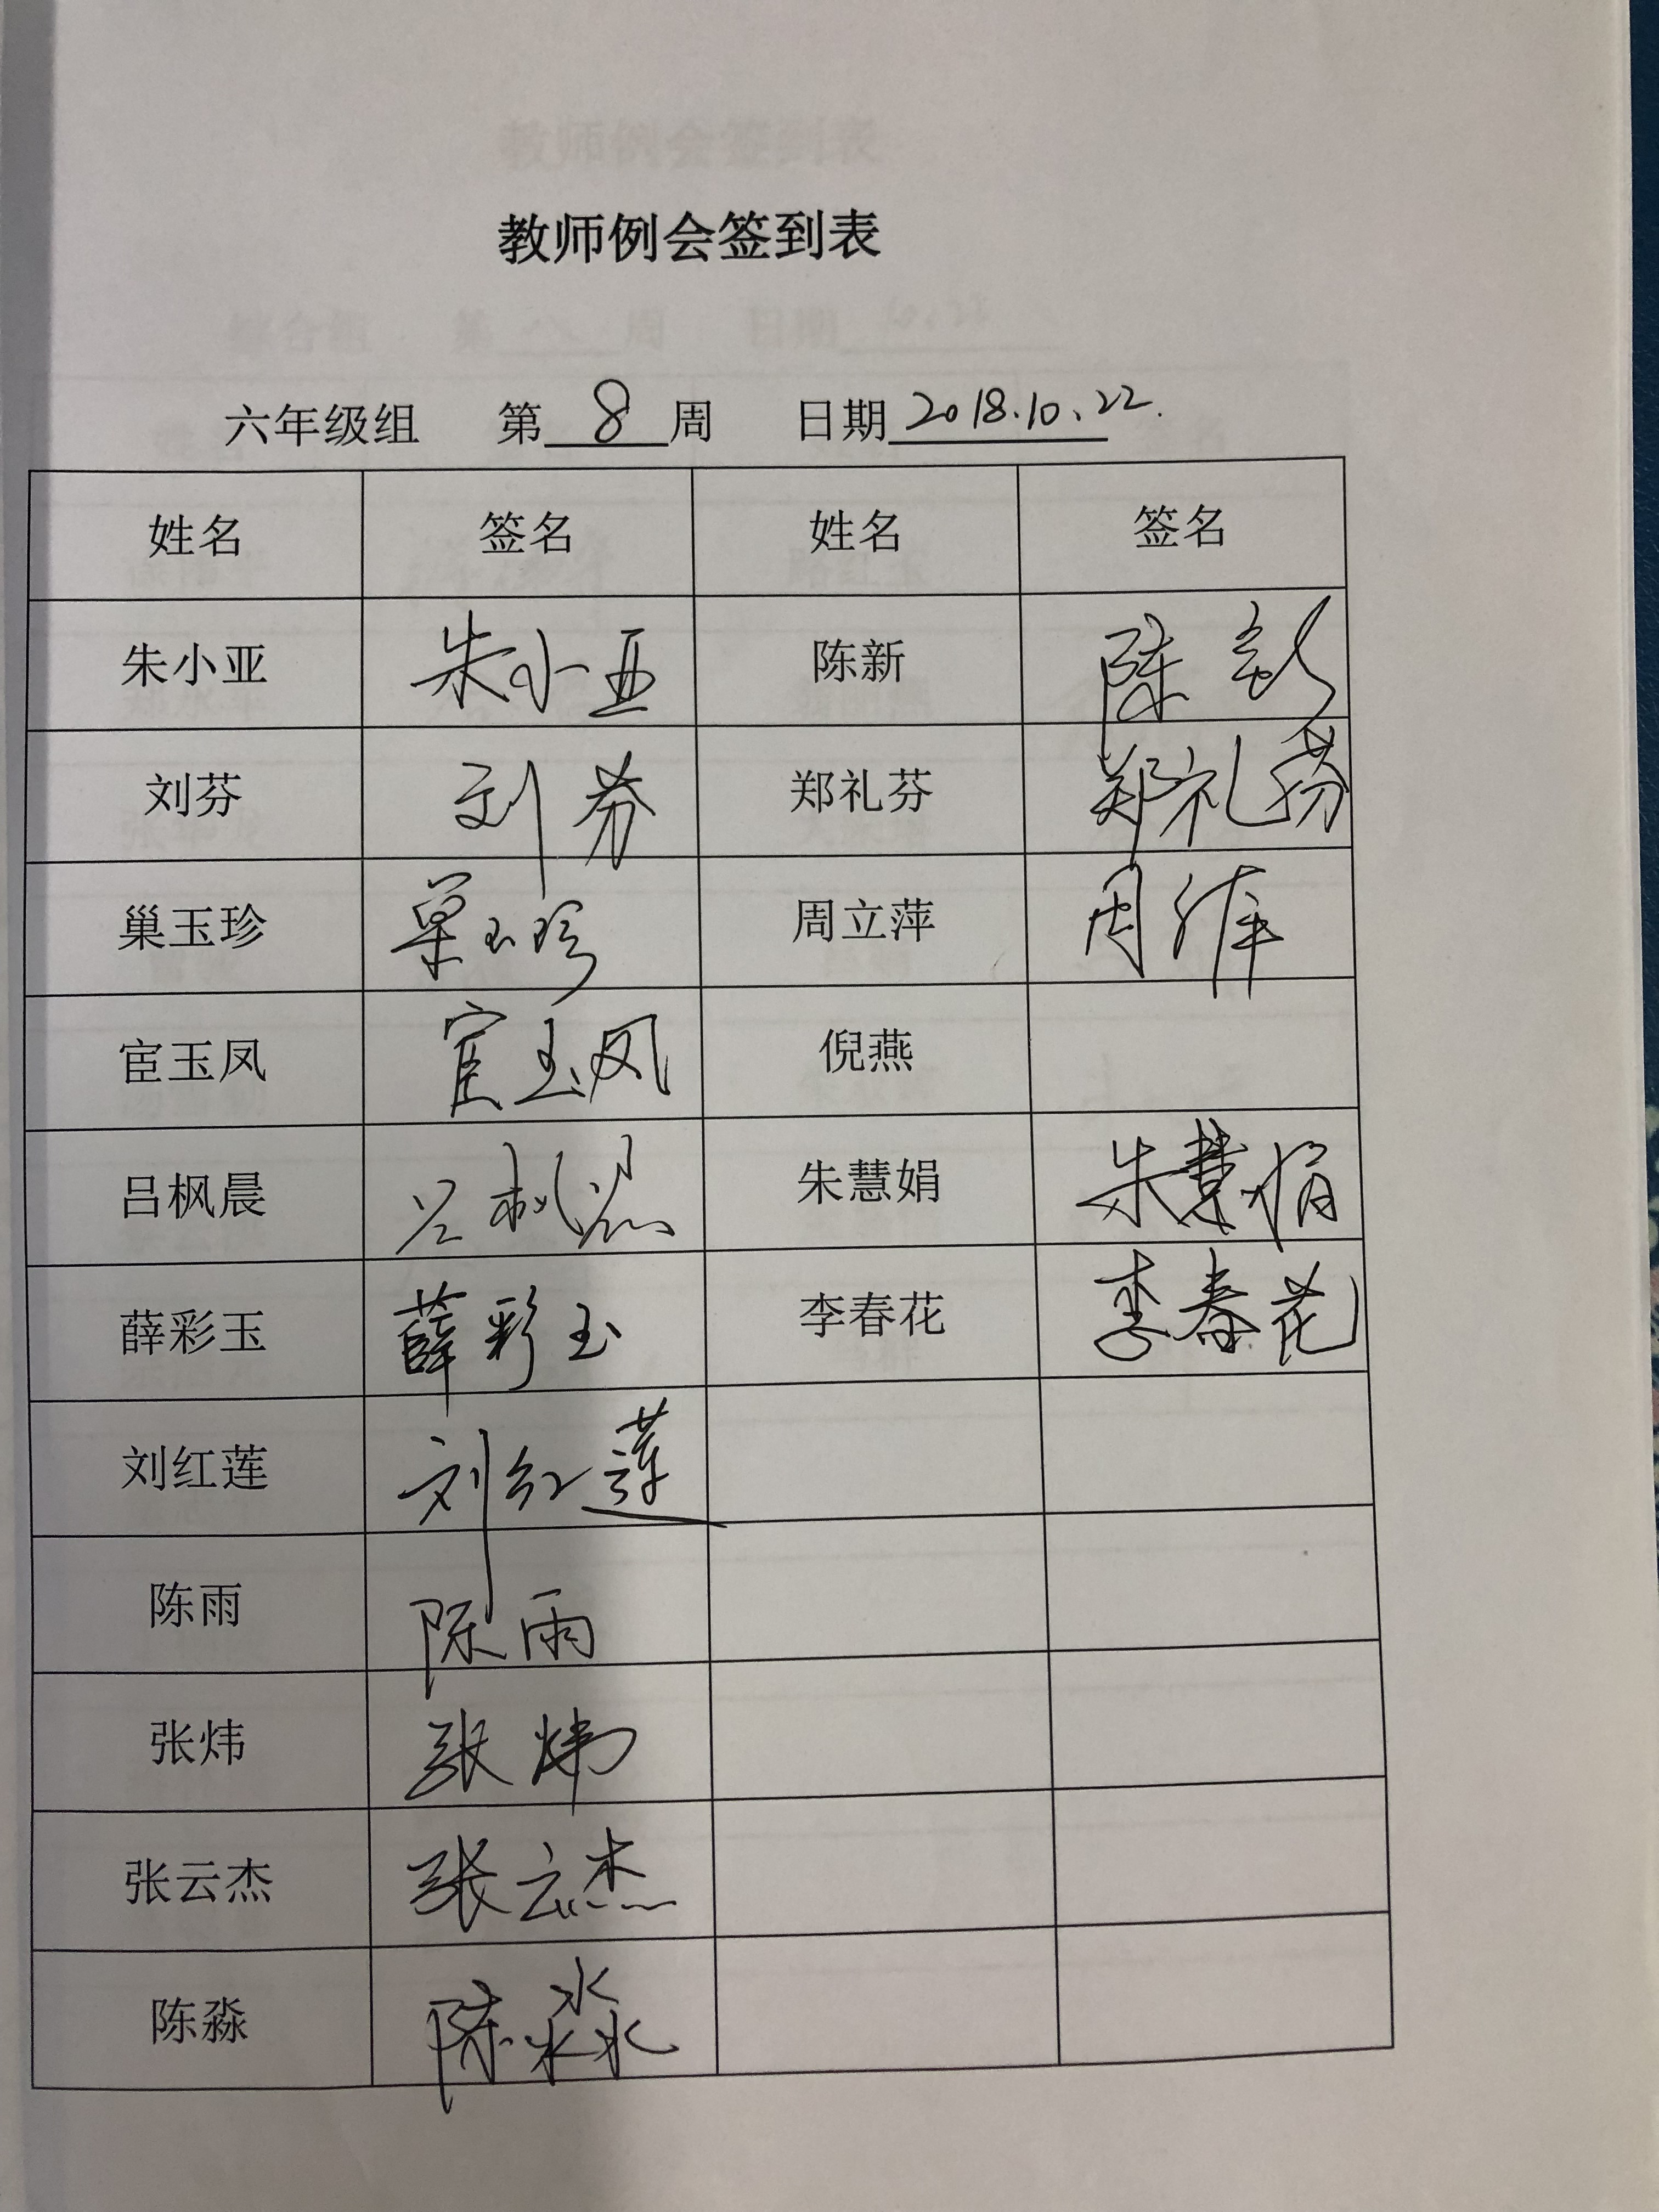 教师例会签到表
六年级组 第 8 周 日期 2018.10.22.
姓名 签名 姓名 签名
朱小亚 朱小亚 陈新 陈新
刘芬 刘芬 郑礼芬 郑礼芬
巢玉珍 巢玉珍 周立萍 周立萍
宦玉凤 宦玉凤 倪燕
吕枫晨 吕枫晨 朱慧娟 朱慧娟
薛彩玉 薛彩玉 李春花 李春花
刘红莲 刘红莲
陈雨 陈雨
张炜 张炜
张云杰 张云杰
陈淼 陈淼